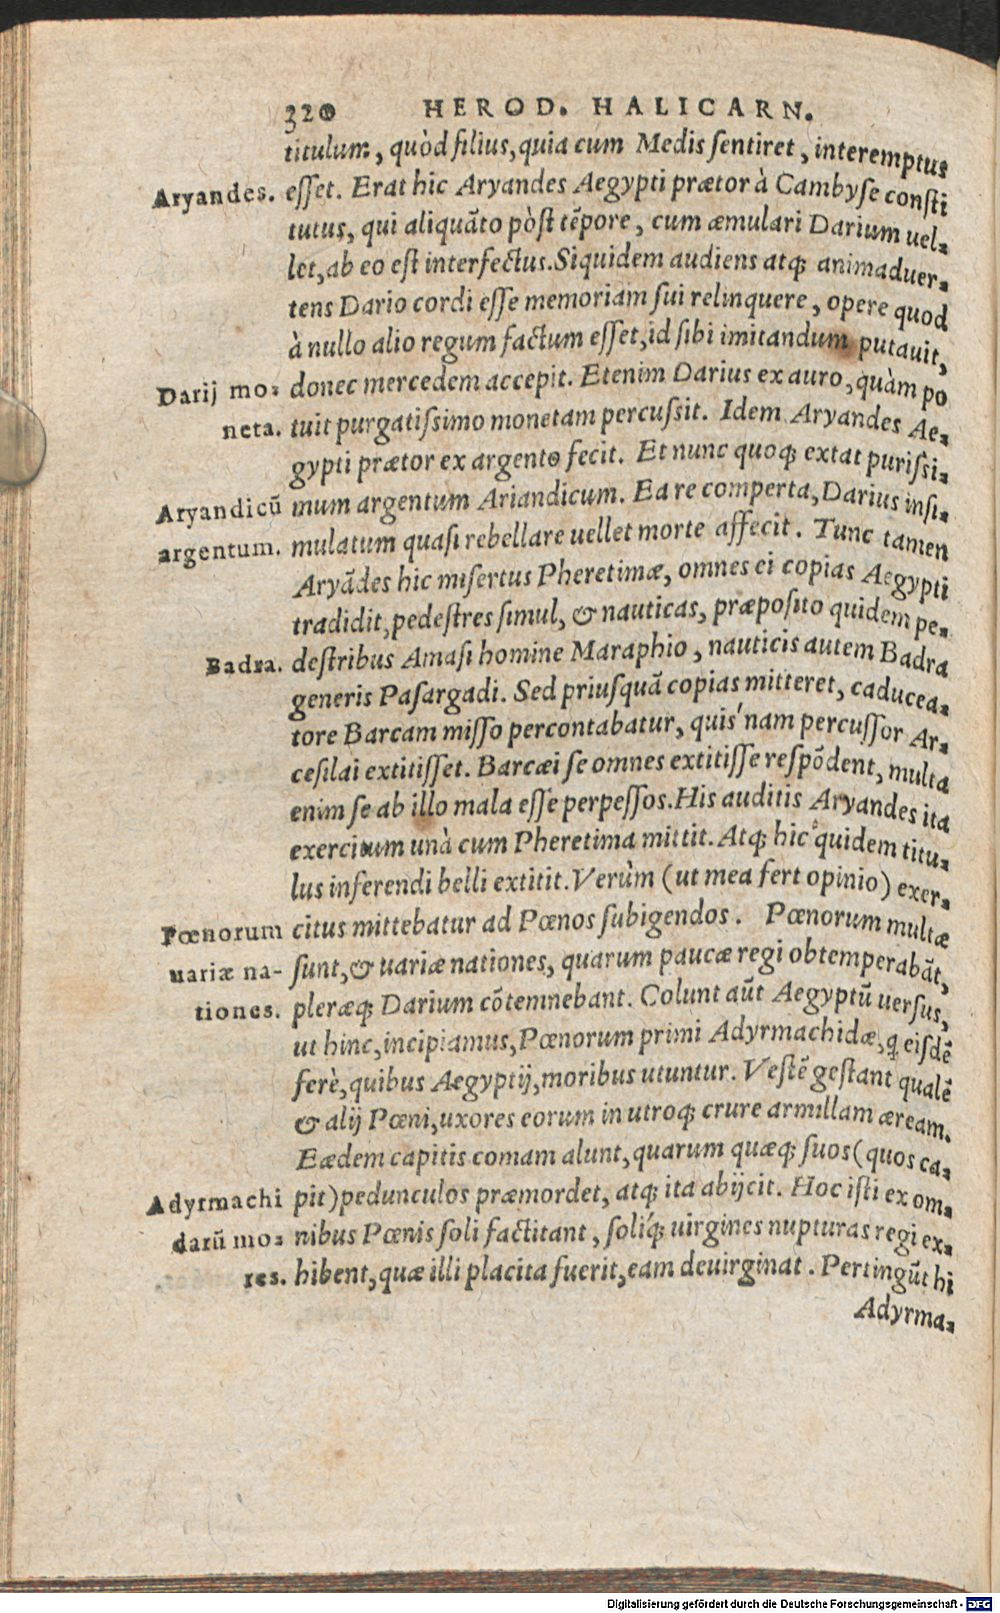 320 HEROD. HALICARN.
titulum, quòd filius, quia cum Medis sentiret, interemptus
Aryandes. esset. Erat hic Aryandes Aegypti prætor à Cambyse consti
tutus, qui aliquãto pòst tẽpore, cum æmulari Darium uel-
let, ab eo est interfectus. Siquidem audiens atq; animaduer-
tens Dario cordi esse memoriam sui relinquere, opere quod
à nullo alio regum factum esset, id sibi imitandum putauit,
Darij mo- donec mercedem accepit. Etenim Darius ex auro, quàm po
neta. tuit purgatissimo monetam percussit. Idem Aryandes Ae-
gypti prætor ex argento fecit. Et nunc quoq; extat purissi-
Aryandicũ mum argentum Ariandicum. Ea re comperta, Darius insi-
argentum. mulatum quasi rebellare uellet morte affecit. Tunc tamen
Aryãdes hic misertus Pheretimæ, omnes ei copias Aegypti
tradidit, pedestres simul, & nauticas, præposito quidem pe-
Badra. destribus Amasi homine Maraphio, nauticis autem Badra
generis Pasargadi. Sed priusquã copias mitteret, caducea-
tore Barcam misso percontabatur, quis'nam percussor Ar-
cesilai extitisset. Barcæi se omnes extitisse respõdent, multa
enim se ab illo mala esse perpessos. His auditis Aryandes ita
exercitum unà cum Pheretima mittit. Atq; hic quidem titu-
lus inferendi belli extitit. Verùm (ut mea fert opinio) exer-
Pœnorum citus mittebatur ad Pœnos subigendos. Pœnorum multæ
uariæ na- sunt, & uariæ nationes, quarum paucæ regi obtemperabãt,
tiones. pleræq; Darium cõtemnebant. Colunt aũt Aegyptũ uersus,
ut hinc, incipiamus, Pœnorum primi Adyrmachidæ, ꝗ eisdẽ
ferè, quibus Aegyptij, moribus utuntur. Vestẽ gestant qualẽ
& alij Pœni, uxores eorum in utroq; crure armillam æream.
Eædem capitis comam alunt, quarum quæq; suos (quos ca-
Adyrmachi pit) pedunculos præmordet, atq; ita abijcit. Hoc isti ex om-
darũ mo- nibus Pœnis soli factitant, soliq́; uirgines nupturas regi ex-
res. hibent, quæ illi placita fuerit, eam deuirginat. Pertingũt hi
Adyrma-
Digitalisierung gefördert durch die Deutsche Forschungsgemeinschaft - DFG